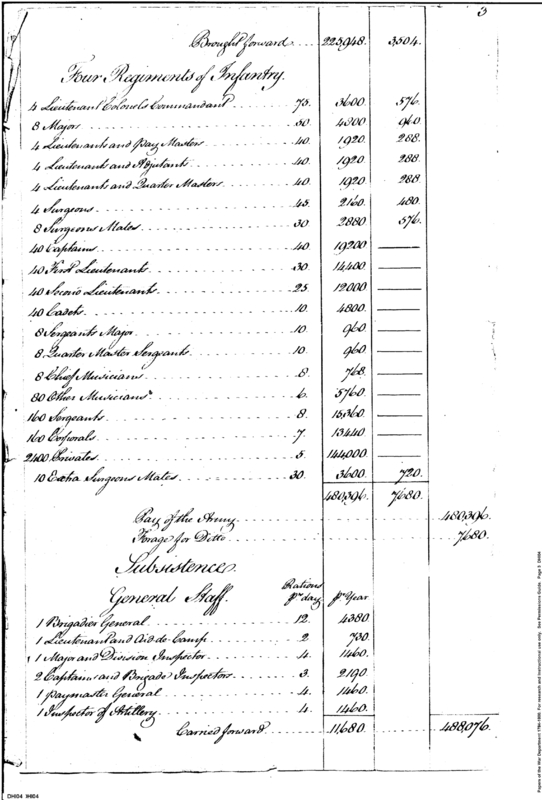 3
Brought forward 225,948. 3504.
Four Regiments of Infantry.
4 Lieutenant Colonels Commandant 75. 3600. 576.
8 Majors 50. 4800. 960.
4 Lieutenants and Pay Masters 40. 1920. 288.
4 Lieutenants and Adjutants 40. 1920. 288.
4 Lieutenants and Quarter Masters 40. 1920. 288.
4 Surgeons 45. 2160. 480.
8 Surgeons Mates 30. 2880. 576.
40 Captains 40. 19200
40 First Lieutenants 30. 14,400
40 Second Lieutenants 25. 12000
40 Cadets 10. 4800.
8 Sergeants Major 10. 960.
8 Quarter Master Sergeants 10. 960.
8 Chief Musicians 8. 768.
80 Other Musicians 6. 5760.
160 Sergeants 8. 15,360.
160 Corporals 7. 13440
2400 Privates 5. 144,000.
10 Extra Surgeons Mates 30. 3600. 720.
480,396. 7680.
Pay of the Army 480,396.
Forage for Ditto 7680.
Subsistence.
General Staff. Rations pr. day pr. Year
1 Brigadier General 12. 4380.
1 Lieutenant and Aid-de-Camp 2. 730
1 Major and Division Inspector 4. 1460.
2 Captains and Brigade Inspectors 3. 2190.
1 Paymaster General 4. 1460.
1 Inspector of Artillery 4. 1460.
Carried forward 11,680. 488,076.
DHI04 IHI04
Papers of the War Department 1784-1800. For research and instructional use only. See Permissions Guide. Page 3 DHI04